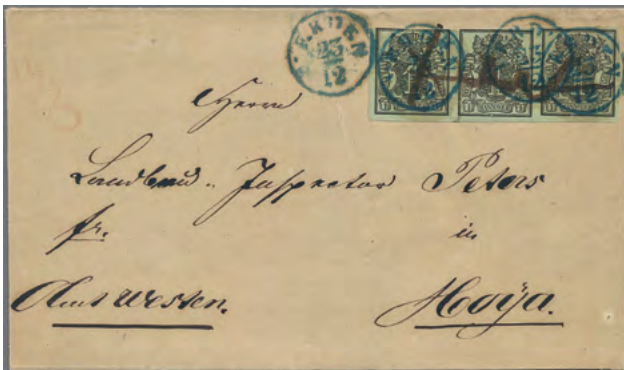 VERDEN
23
12
Herrn
Landbau-Inspector Peters
fr. in
Amt Westen. Hoya.